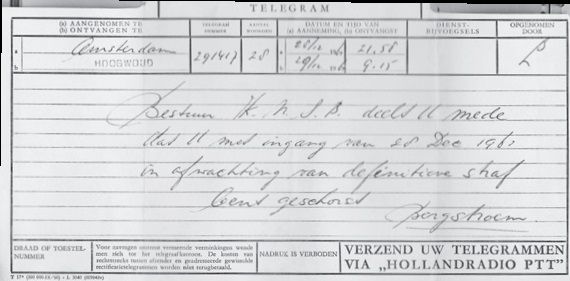 TELEGRAM
(a) AANGENOMEN TE
(b) ONTVANGEN TE
TELEGRAM NUMMER
AANTAL WOORDEN
DATUM EN TIJD VAN
(a) AANNEMING, (b) ONTVANGST
DIENST-BIJVOEGSELS
OPGENOMEN DOOR
a Amsterdam 291417 28 a 28/12 21.58
b HOOGWOUD b 29/12 9.15
Bestuur K.N.S.B. deelt U mede
dat U met ingang van 28 Dec 1961
in afwachting van definitieve straf
bent geschorst
Bergstroem.
DRAAD OF TOESTEL-NUMMER
Voor navragen omtrent vermeende verminkingen wende
men zich tot het telegraafkantoor. De kosten van
rechtstreeks tussen afzender en geadresseerde gewisselde
rectificatietelegrammen worden niet terugbetaald.
NADRUK IS VERBODEN
VERZEND UW TELEGRAMMEN
VIA „HOLLANDRADIO PTT"